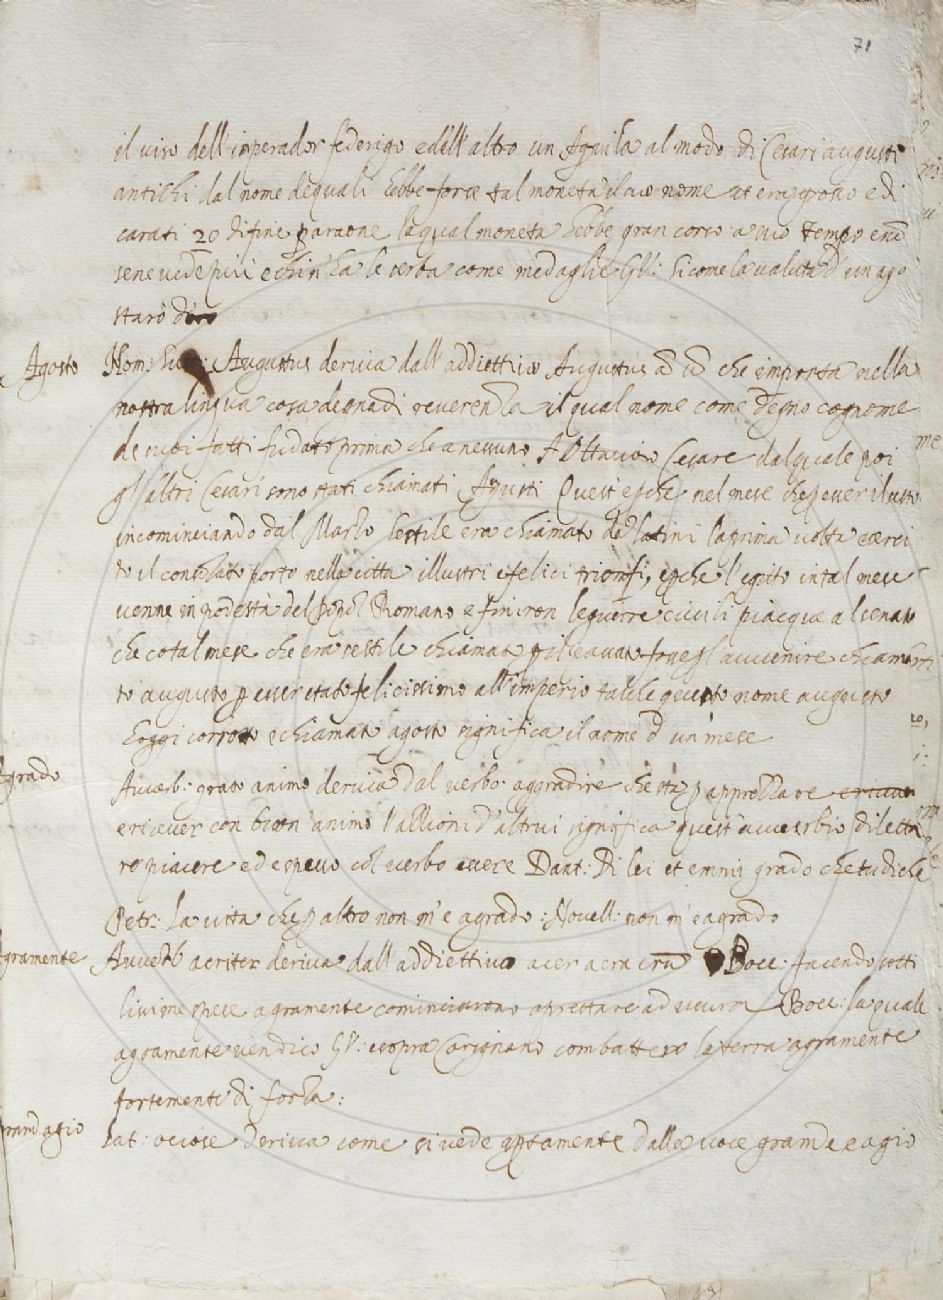 71
il viso dell'imperador federigo e dell'altro un Aquila al modo di Cesari augusti
antichi dal nome dequali hebbe forse tal moneta il suo nome et era grosso e di
carati 20 di fine paraone la qual moneta hebbe gran corso a suo tempo
sene vede più e chin'ha le serba come medaglie GV: si come la valuta d'un ago
staro d'oro
Agosto Nom: Augustus deriva dall'addiettivo Augustus a ū che importa nella
nostra lingua cosa degna di reverenza il qual nome come degno cognome
de suoi fatti fu dato prima che a nessuno A Ottavio Cesare dal quale poi
gl'altri Cesari sono stati chiamati Agusti Quest'e che nel mese che esser il
incominciando dal Marzo sestile era chiamato da latini la prima volta
to il consolato porto nella citta illustri e felici trionfi, e che l'egitto in tal mese
venne in podestà del popol Romano e finiron le guerre civili piacque al senato
che cotal mese che era sestile chiamato p l'avvenire chiama
to augusto p esser stato felicissimo all'imperio talche questo nome augusto
hoggi corrotto e chiamato agosto significa il nome d'un mese
grado Avverb: grato animo deriva dal verbo aggradire che sta p apprezzare
e ricever con buon'animo l'attioni d'altrui significa quest'avverbio diletta
re piacere ed e spesso col verbo essere Dant: Di lei et emmi grado che tu diche
Petr: la vita che p altro non m'e agrado: Novell: non m'e agrado
gramente Avverb acriter deriva dall'addiettivo acer acra crū Bocc: facendo sotti
lissime spese agramente cominciarono a prestare ad usura Bocc: la quale
agramente vendico GV: e sopra Carignano combattero la terra agramente
fortemente di forza:
grand agio Lat: ociose deriva come si vede aptamente dalla voce grande e agio